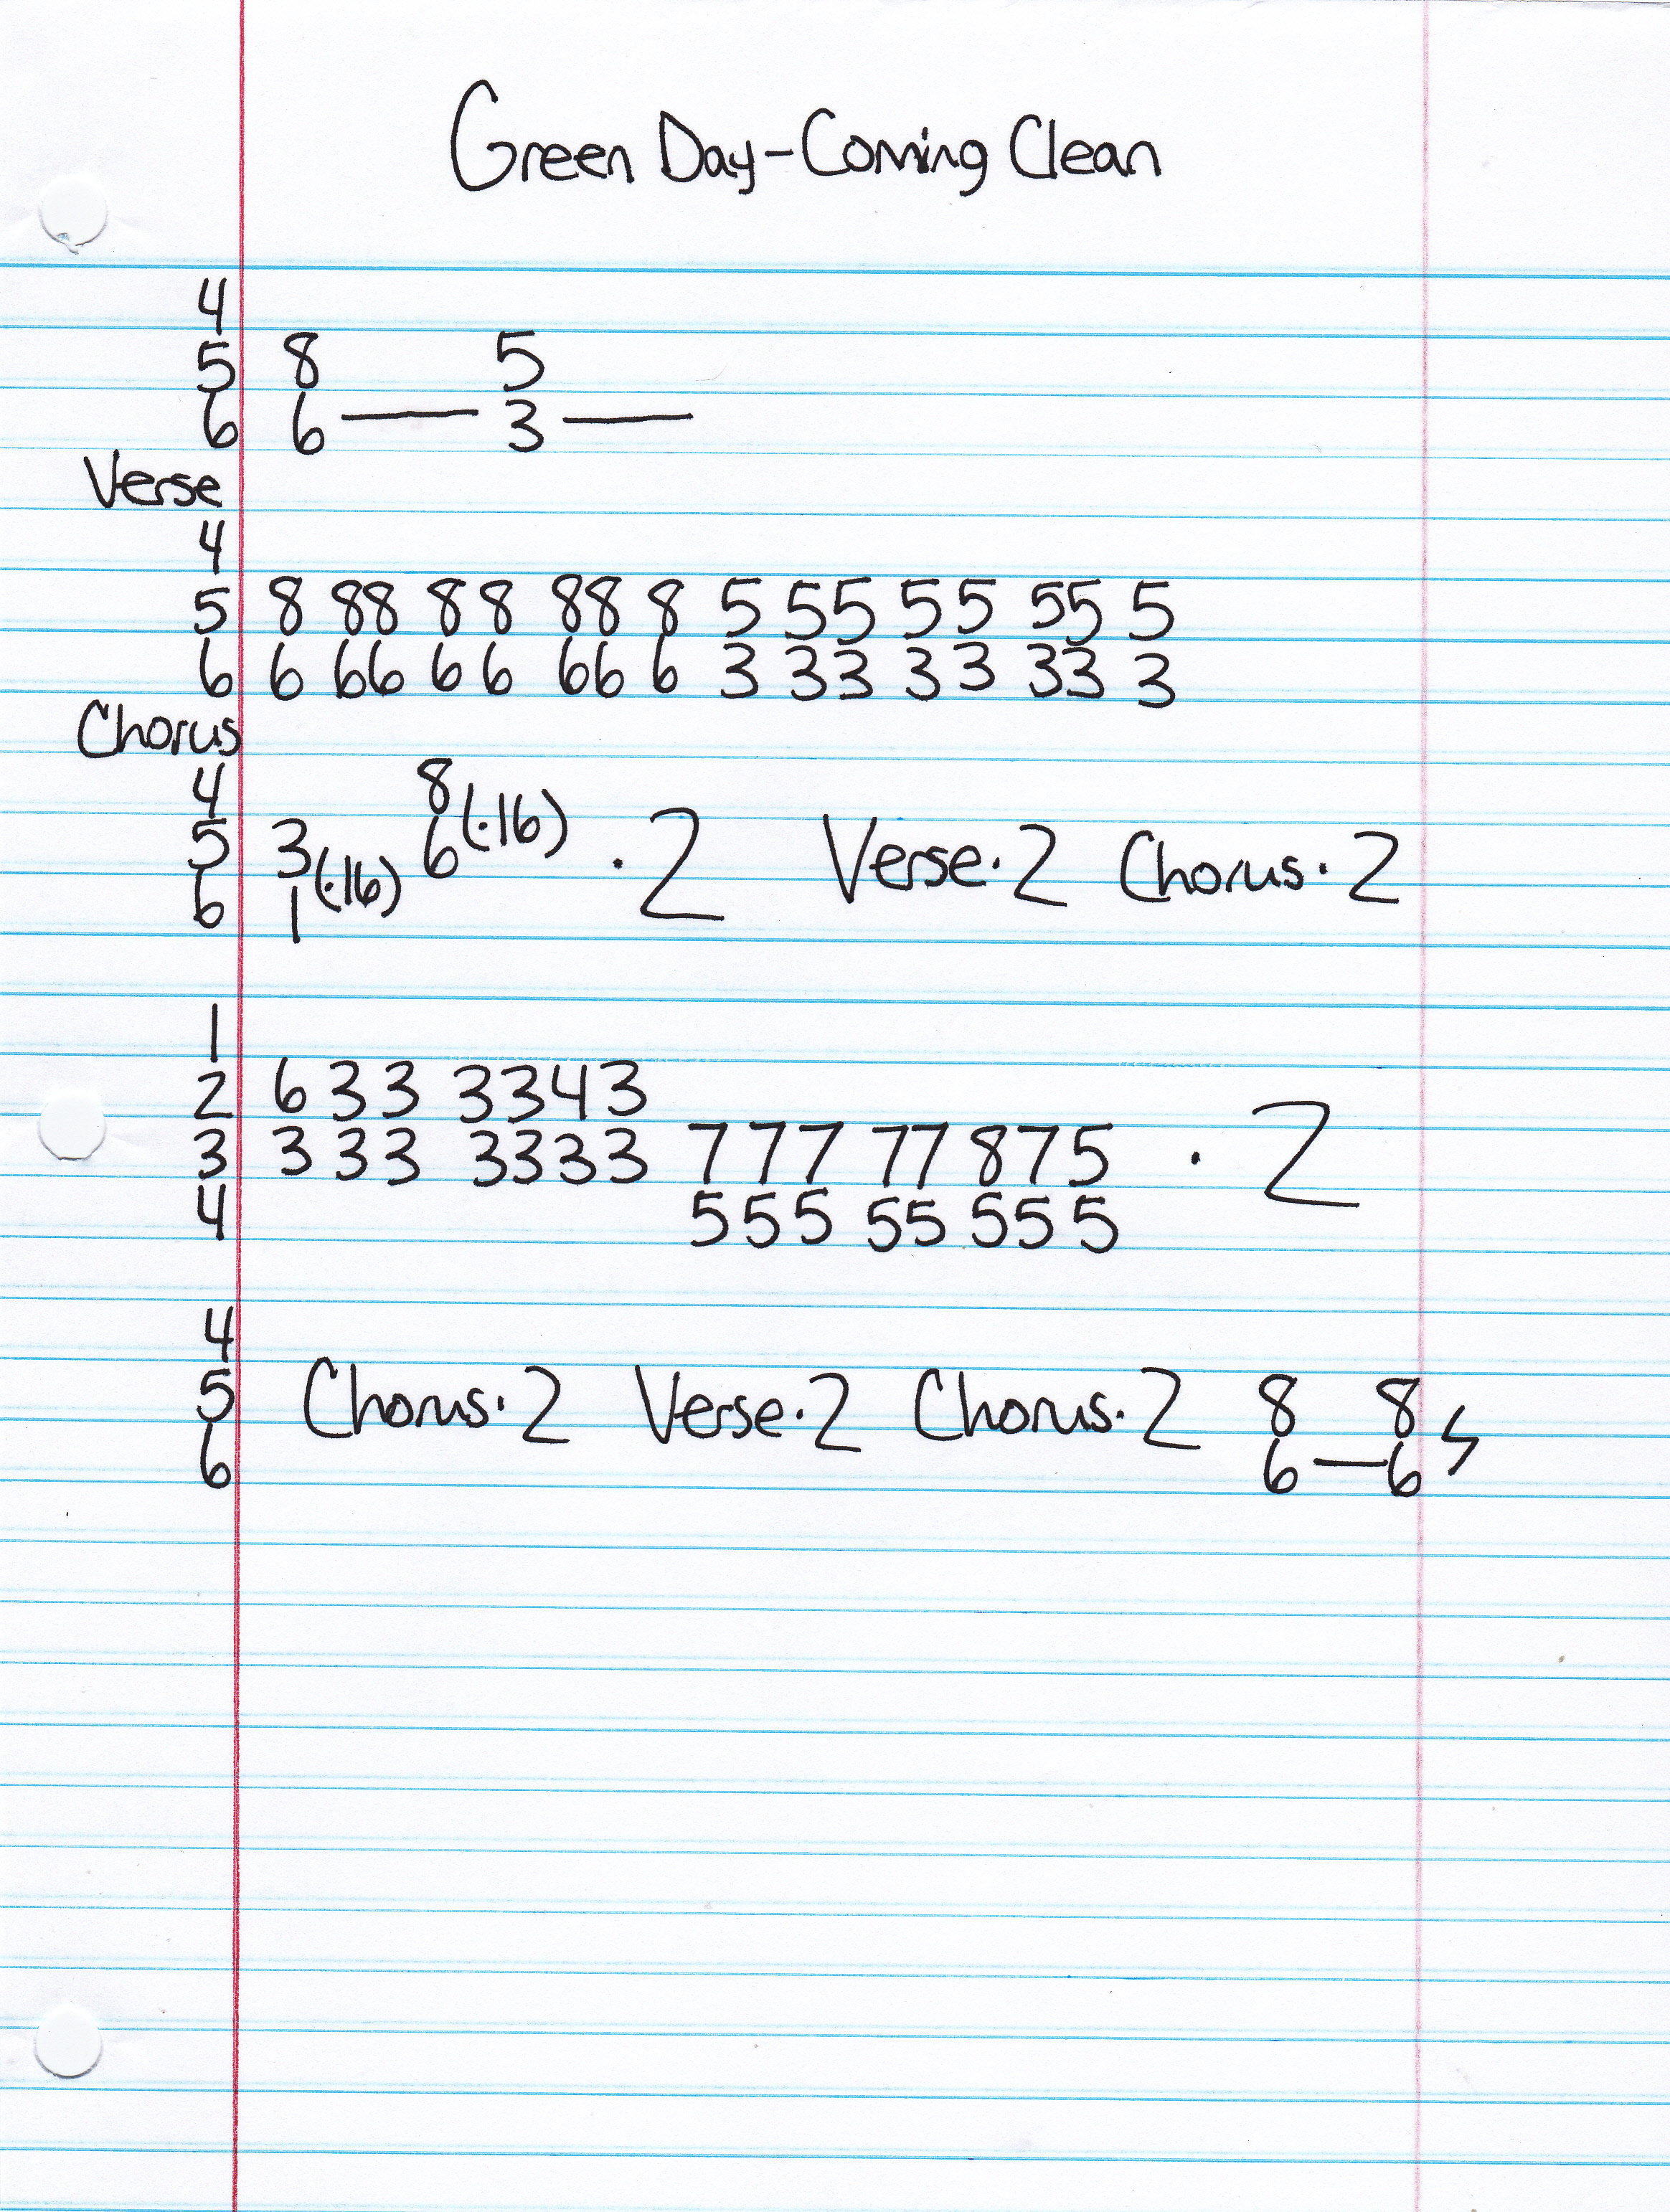 Green Day-Coming Clean
4
5 8 5
6 6 — 3 —
Verse
4
5 8 88 8 8 88 8 5 55 5 5 55 5
6 6 66 6 6 66 6 3 33 3 3 33 3
Chorus
4 8
5 3 (·16) 6 (·16) · 2 Verse·2 Chorus·2
6 1
1
2 6 3 3 3 3 4 3
3 3 3 3 3 3 3 3 7 7 7 7 7 8 7 5 · 2
4 5 5 5 5 5 5 5 5
4
5 Chorus·2 Verse·2 Chorus·2 8 8
6 6 — 6